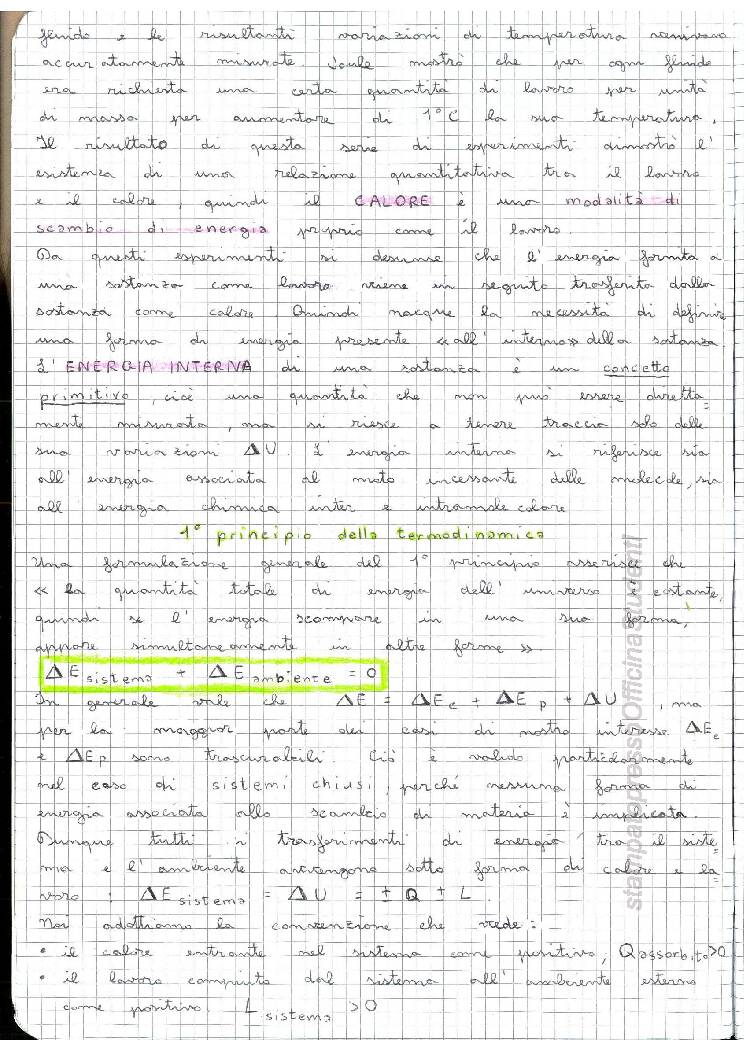 fluido e le risultanti variazioni di temperatura venivano
accuratamente misurate. Joule mostrò che per ogni fluido
era richiesta una certa quantità di lavoro per unità
di massa per aumentare di 1°C la sua temperatura.
Il risultato di questa serie di esperimenti dimostrò l'
esistenza di una relazione quantitativa tra il lavoro
e il calore, quindi il CALORE è una modalità di
scambio di energia proprio come il lavoro.
Da questi esperimenti si desunse che l'energia fornita a
una sostanza come lavoro viene in seguito trasferita dalla
sostanza come calore. Quindi nacque la necessità di definire
una forma di energia presente «all'interno» della sostanza.
L'ENERGIA INTERNA di una sostanza è un concetto
primitivo, cioè una quantità che non può essere diretta=
mente misurata, ma si riesce a tenere traccia solo delle
sue variazioni ΔU. L'energia interna si riferisce sia
all'energia associata al moto incessante delle molecole, sia
all'energia chimica inter e intramolecolare
1° principio della termodinamica
Una formulazione generale del 1° principio asserisce che
« la quantità totale di energia dell'universo è costante,
quindi se l'energia scompare in una sua forma,
appare simultaneamente in altre forme ».
ΔE sistema + ΔE ambiente = 0
In generale vale che ΔE = ΔEc + ΔEp + ΔU, ma
per la maggior parte dei casi di nostro interesse ΔEc
e ΔEp sono trascurabili. Ciò è valido particolarmente
nel caso di sistemi chiusi, perché nessuna forma di
energia associata allo scambio di materia è implicata.
Dunque tutti i trasferimenti di energia tra il siste=
ma e l'ambiente avvengono sotto forma di calore e la=
voro : ΔE sistema = ΔU = ± Q ± L
Noi adottiamo la convenzione che vede :
• il calore entrante nel sistema come positivo, Q assorbito >0
• il lavoro compiuto dal sistema all'ambiente esterno
come positivo. L sistema >0
stampatopressoOfficinaStudenti